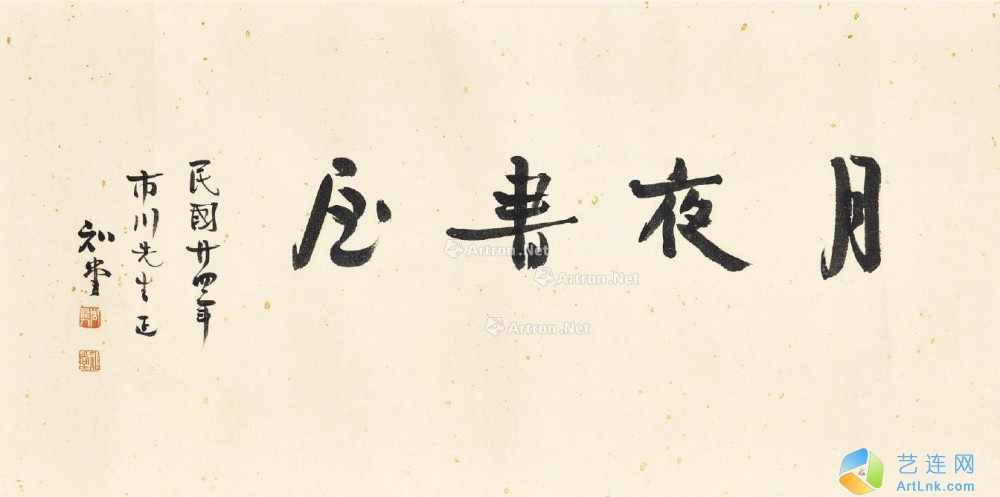 月夜書屋
民國廿四年
市川先生正
知堂
Artron.Net
Artron.Net
Artron.Net
艺连网
ArtLnk.com